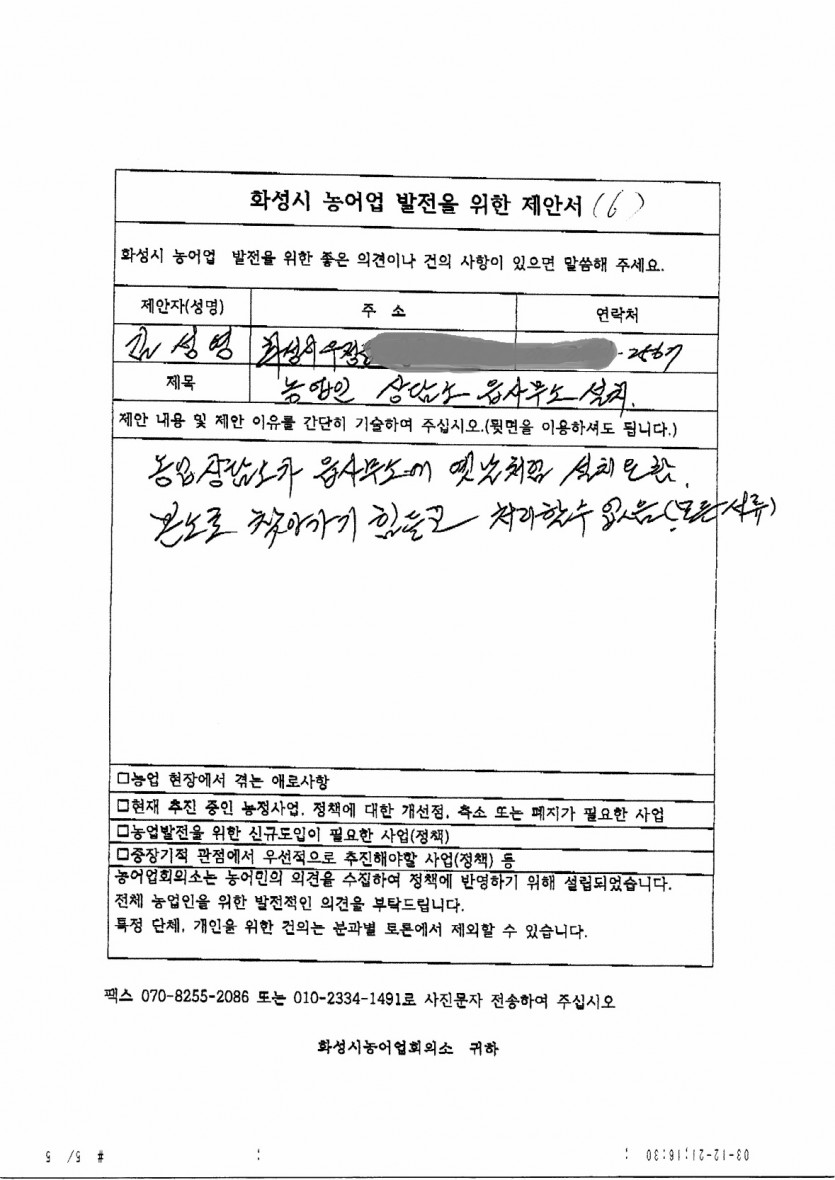 화성시 농어업 발전을 위한 제안서 (6)
화성시 농어업 발전을 위한 좋은 의견이나 건의 사항이 있으면 말씀해 주세요.
제안자(성명) 주 소 연락처
김 성 영 화성시 우정읍 -2567
제목 농업인 상담소 읍사무소 설치.
제안 내용 및 제안 이유를 간단히 기술하여 주십시오.(뒷면을 이용하셔도 됩니다.)
농업상담소가 읍사무소에 옛날처럼 설치 요함.
본소로 찾아가기 힘들고 처리할수 없음(모든 서류)
□농업 현장에서 겪는 애로사항
□현재 추진 중인 농정사업, 정책에 대한 개선점, 축소 또는 폐지가 필요한 사업
□농업발전을 위한 신규도입이 필요한 사업(정책)
□중장기적 관점에서 우선적으로 추진해야할 사업(정책) 등
농어업회의소는 농어민의 의견을 수집하여 정책에 반영하기 위해 설립되었습니다.
전체 농업인을 위한 발전적인 의견을 부탁드립니다.
특정 단체, 개인을 위한 건의는 분과별 토론에서 제외할 수 있습니다.
팩스 070-8255-2086 또는 010-2334-1491로 사진문자 전송하여 주십시오
화성시농어업회의소 귀하
03-12-21;16:30 ; ; # 5/ 5